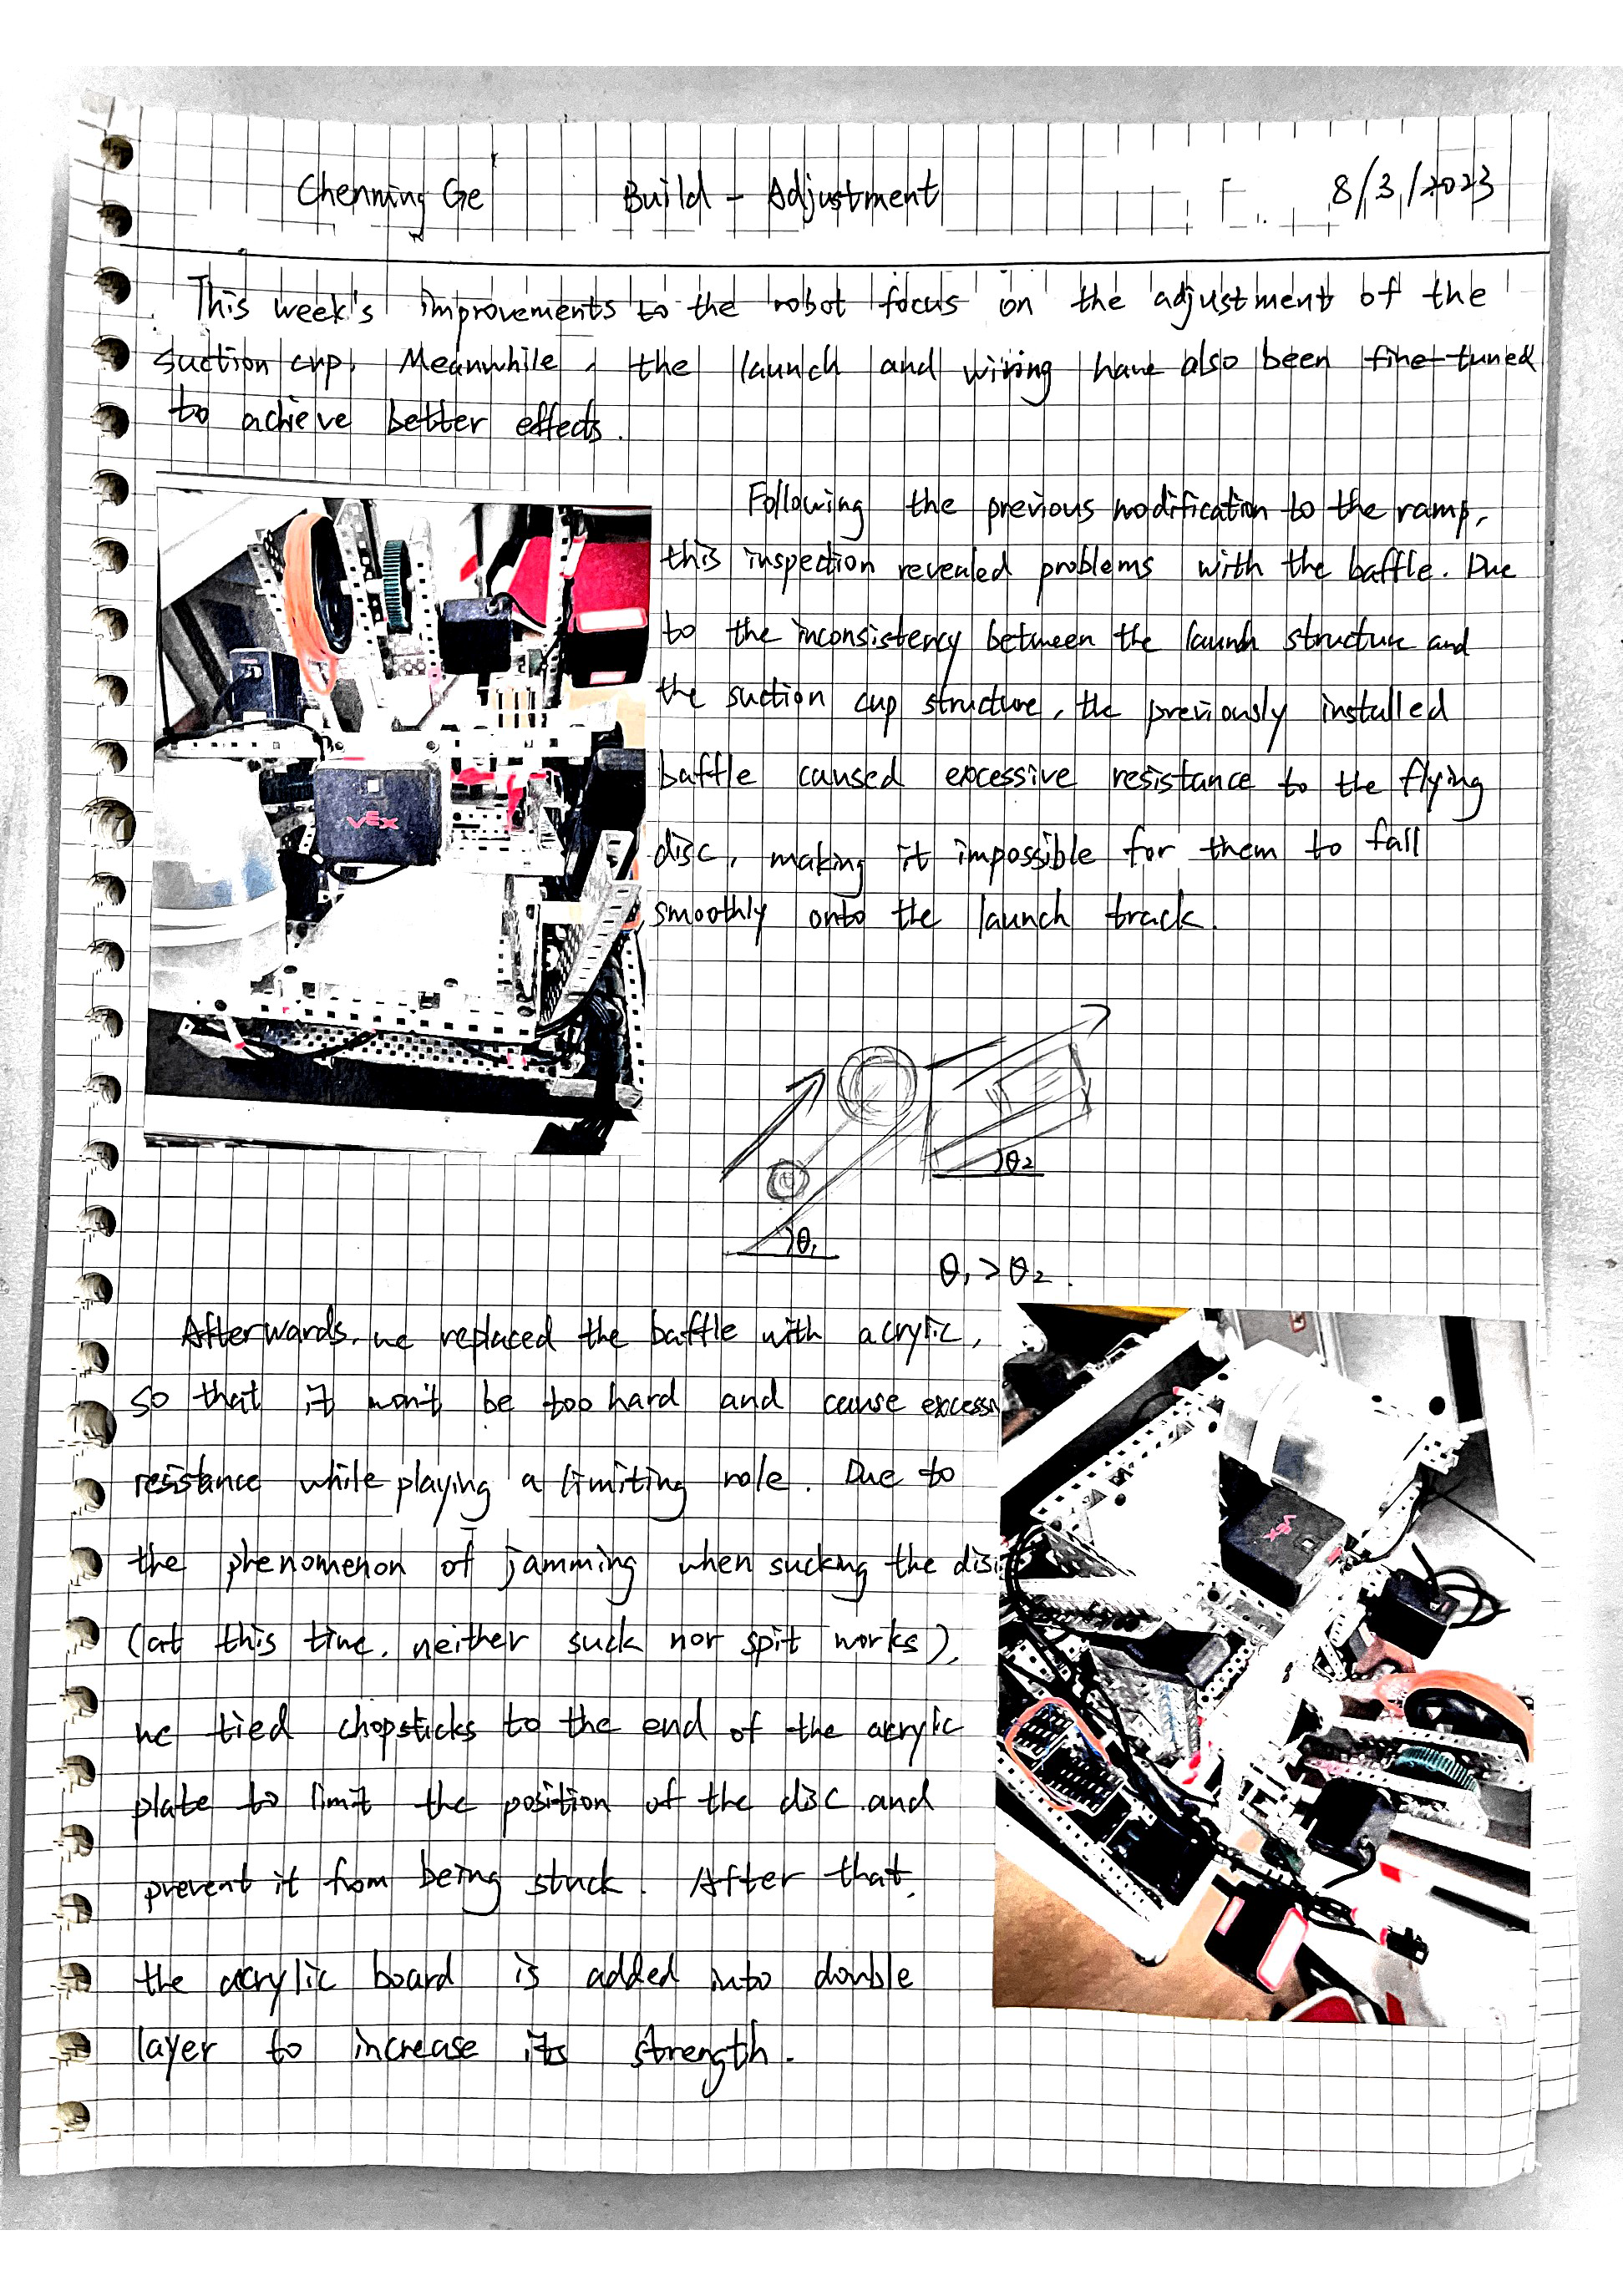 Chenning Ge Build - Adjustment 8/3/2023
This week's improvements to the robot focus on the adjustment of the
suction cup. Meanwhile, the launch and wiring have also been fine-tuned
to achieve better effects.
Following the previous modification to the ramp,
this inspection revealed problems with the baffle. Due
to the inconsistency between the launch structure and
the suction cup structure, the previously installed
baffle caused excessive resistance to the flying
disc, making it impossible for them to fall
smoothly onto the launch track.
VEX
θ2
θ1
θ1 > θ2.
Afterwards, we replaced the baffle with acrylic,
so that it won't be too hard and cause excess
resistance while playing a limiting role. Due to
the phenomenon of jamming when sucking the dis
(at this time, neither suck nor spit works),
we tied chopsticks to the end of the acrylic
plate to limit the position of the disc and
prevent it from being stuck. After that,
the acrylic board is added into double
layer to increase its strength.
VEX